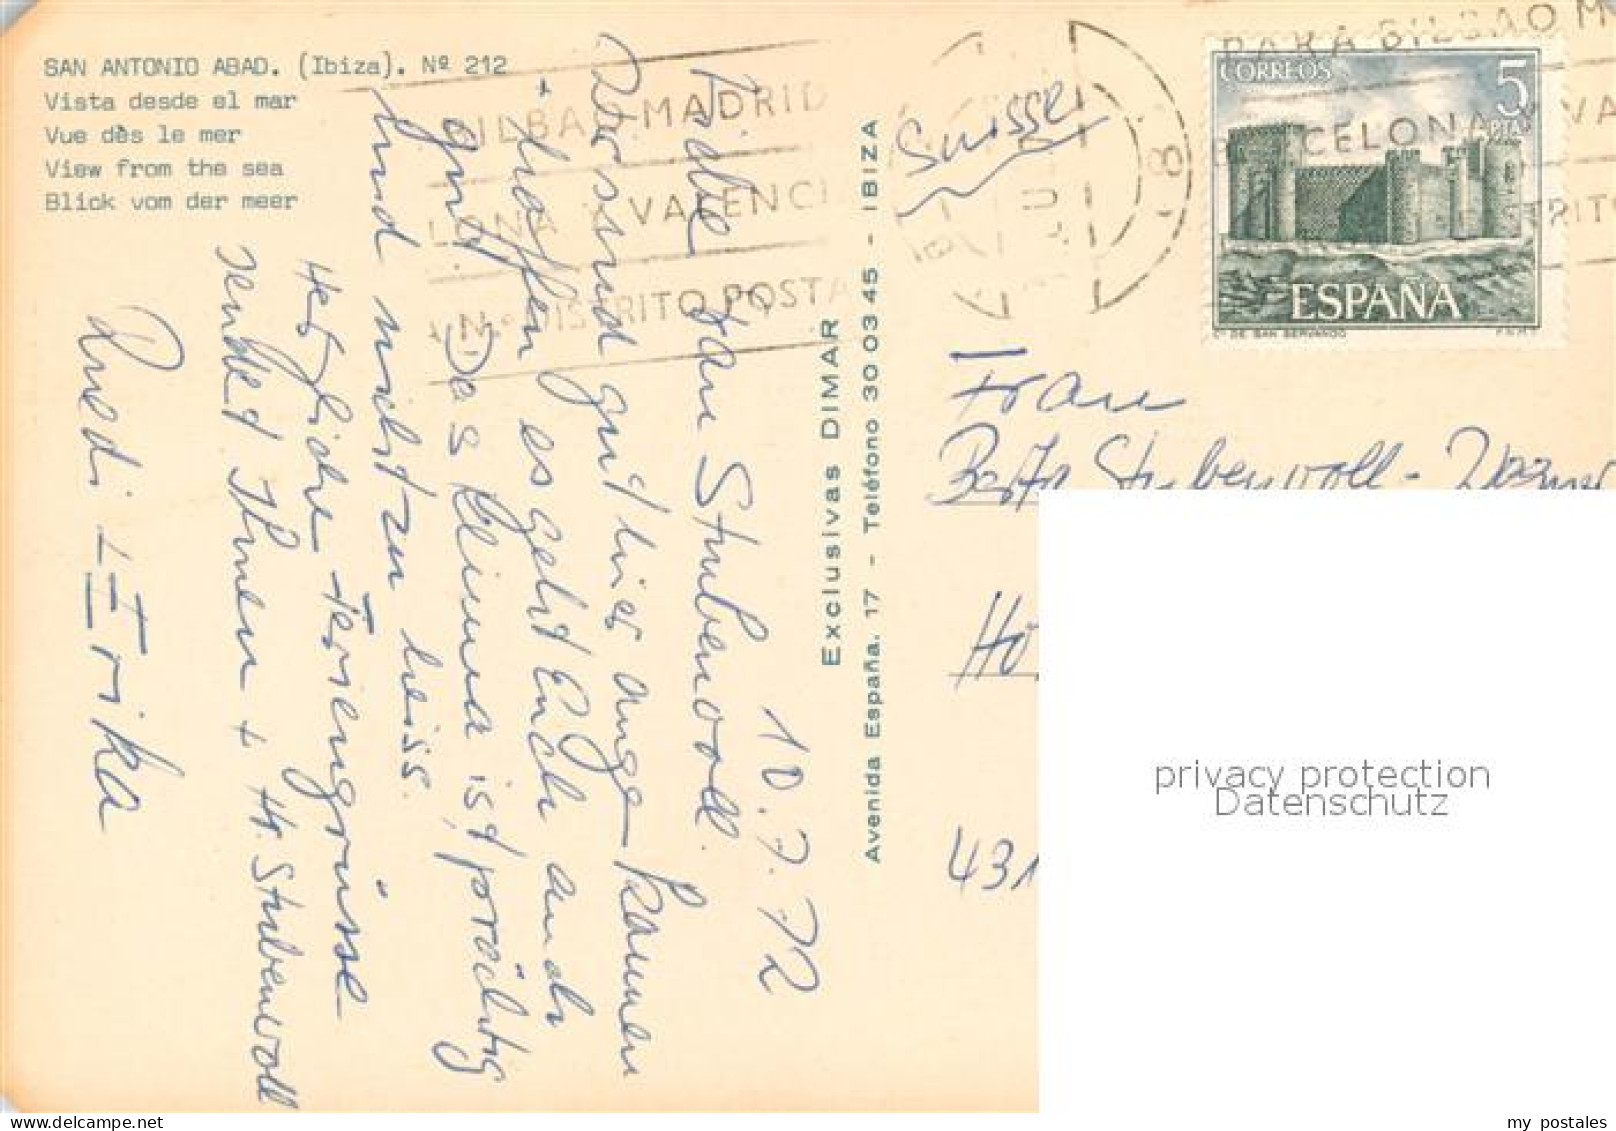 SAN ANTONIO ABAD. (Ibiza). Nº 212
Vista desde el mar
Vue dès le mer
View from the sea
Blick vom der meer
10.7.72
Liebe Frau Stubenvoll.
Wir sind gut hier angekommen
+ hoffen es geht Euch auch
gut. Das Clima ist prächtig
und nicht zu heiss.
Herzliche Feriengrüsse
sendet Ihnen + Hr. Stubenvoll
Ruedi + Erika
Exclusivas DIMAR
Avenida España. 17 - Teléfono 30 03 45 - IBIZA
Suisse
PARA BILBAO M
CELONA Y VA
TRITO
BILBAO MADRID
LONA Y VALENCI
N.º DISTRITO POSTA
CORREOS
5
PTAS
ESPAÑA
Cº DE SAN SERVANDO
F.N.M.T
Frau
Stubenvoll -
Hö
431
privacy protection
Datenschutz
my postales